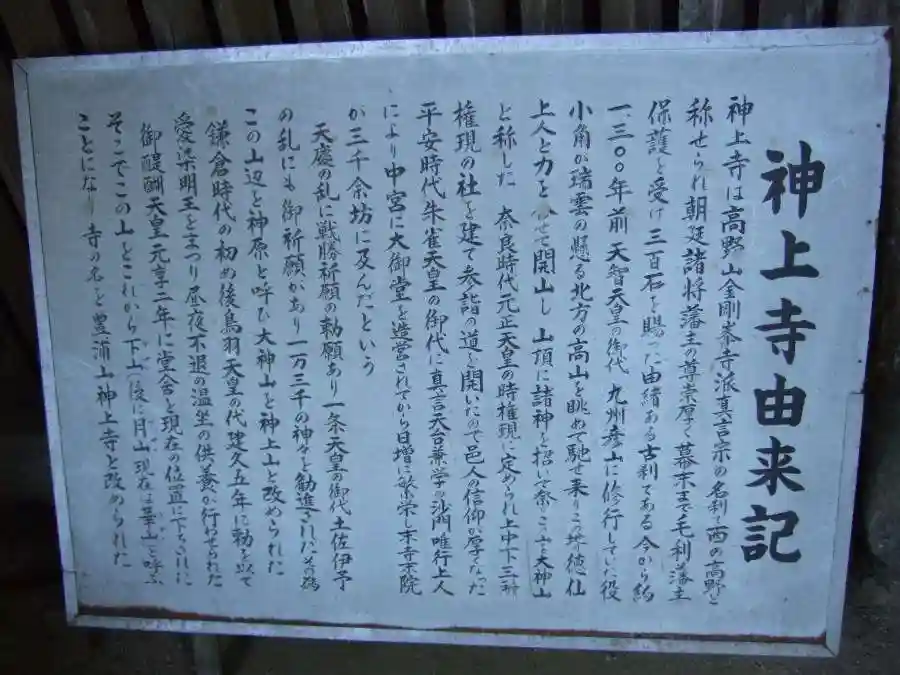 神上寺由来記
神上寺は高野山金剛峯寺派真言宗の名刹で西の高野と
称せられ朝廷諸将藩主の尊崇厚く幕末まで毛利藩主
保護を受け三百石を賜った由緒ある古刹である 今から約
一、三〇〇年前 天智天皇の御代 九州彦山に修行していた役
小角が瑞雲の懸る北方の高山を眺めて馳せ来りこの地の徳仙
上人と力を合せて開山し 山頂に諸神を招いて祭りこの山を大神山
と称した 奈良時代元正天皇の時権現に定められ上中下三社
権現の社を建て参詣の道を開いたので邑人の信仰が厚くなった
平安時代朱雀天皇の御代に真言天台兼学の沙門唯行上人
により中宮に大御堂を造営されてから日増に繁栄し末寺末院
が三千余坊に及んだという
天慶の乱に戦勝祈願の勅願あり一条天皇の御代土佐伊予
の乱にも御祈願があり一万三千の神々を勧進されたその為
この山辺を神原と呼び大神山を神上山と改められた
鎌倉時代の初め後鳥羽天皇の代建久五年に勅を以て
愛染明王をまつり昼夜不退の温坐の供養が行わせられた
御醍醐天皇元亨二年に堂舎を現在の位置に下ろされた
そこでこの山をこれから下山後に月山現在は華山と呼ぶ
ことになり寺の名を豊浦山神上寺と改められた